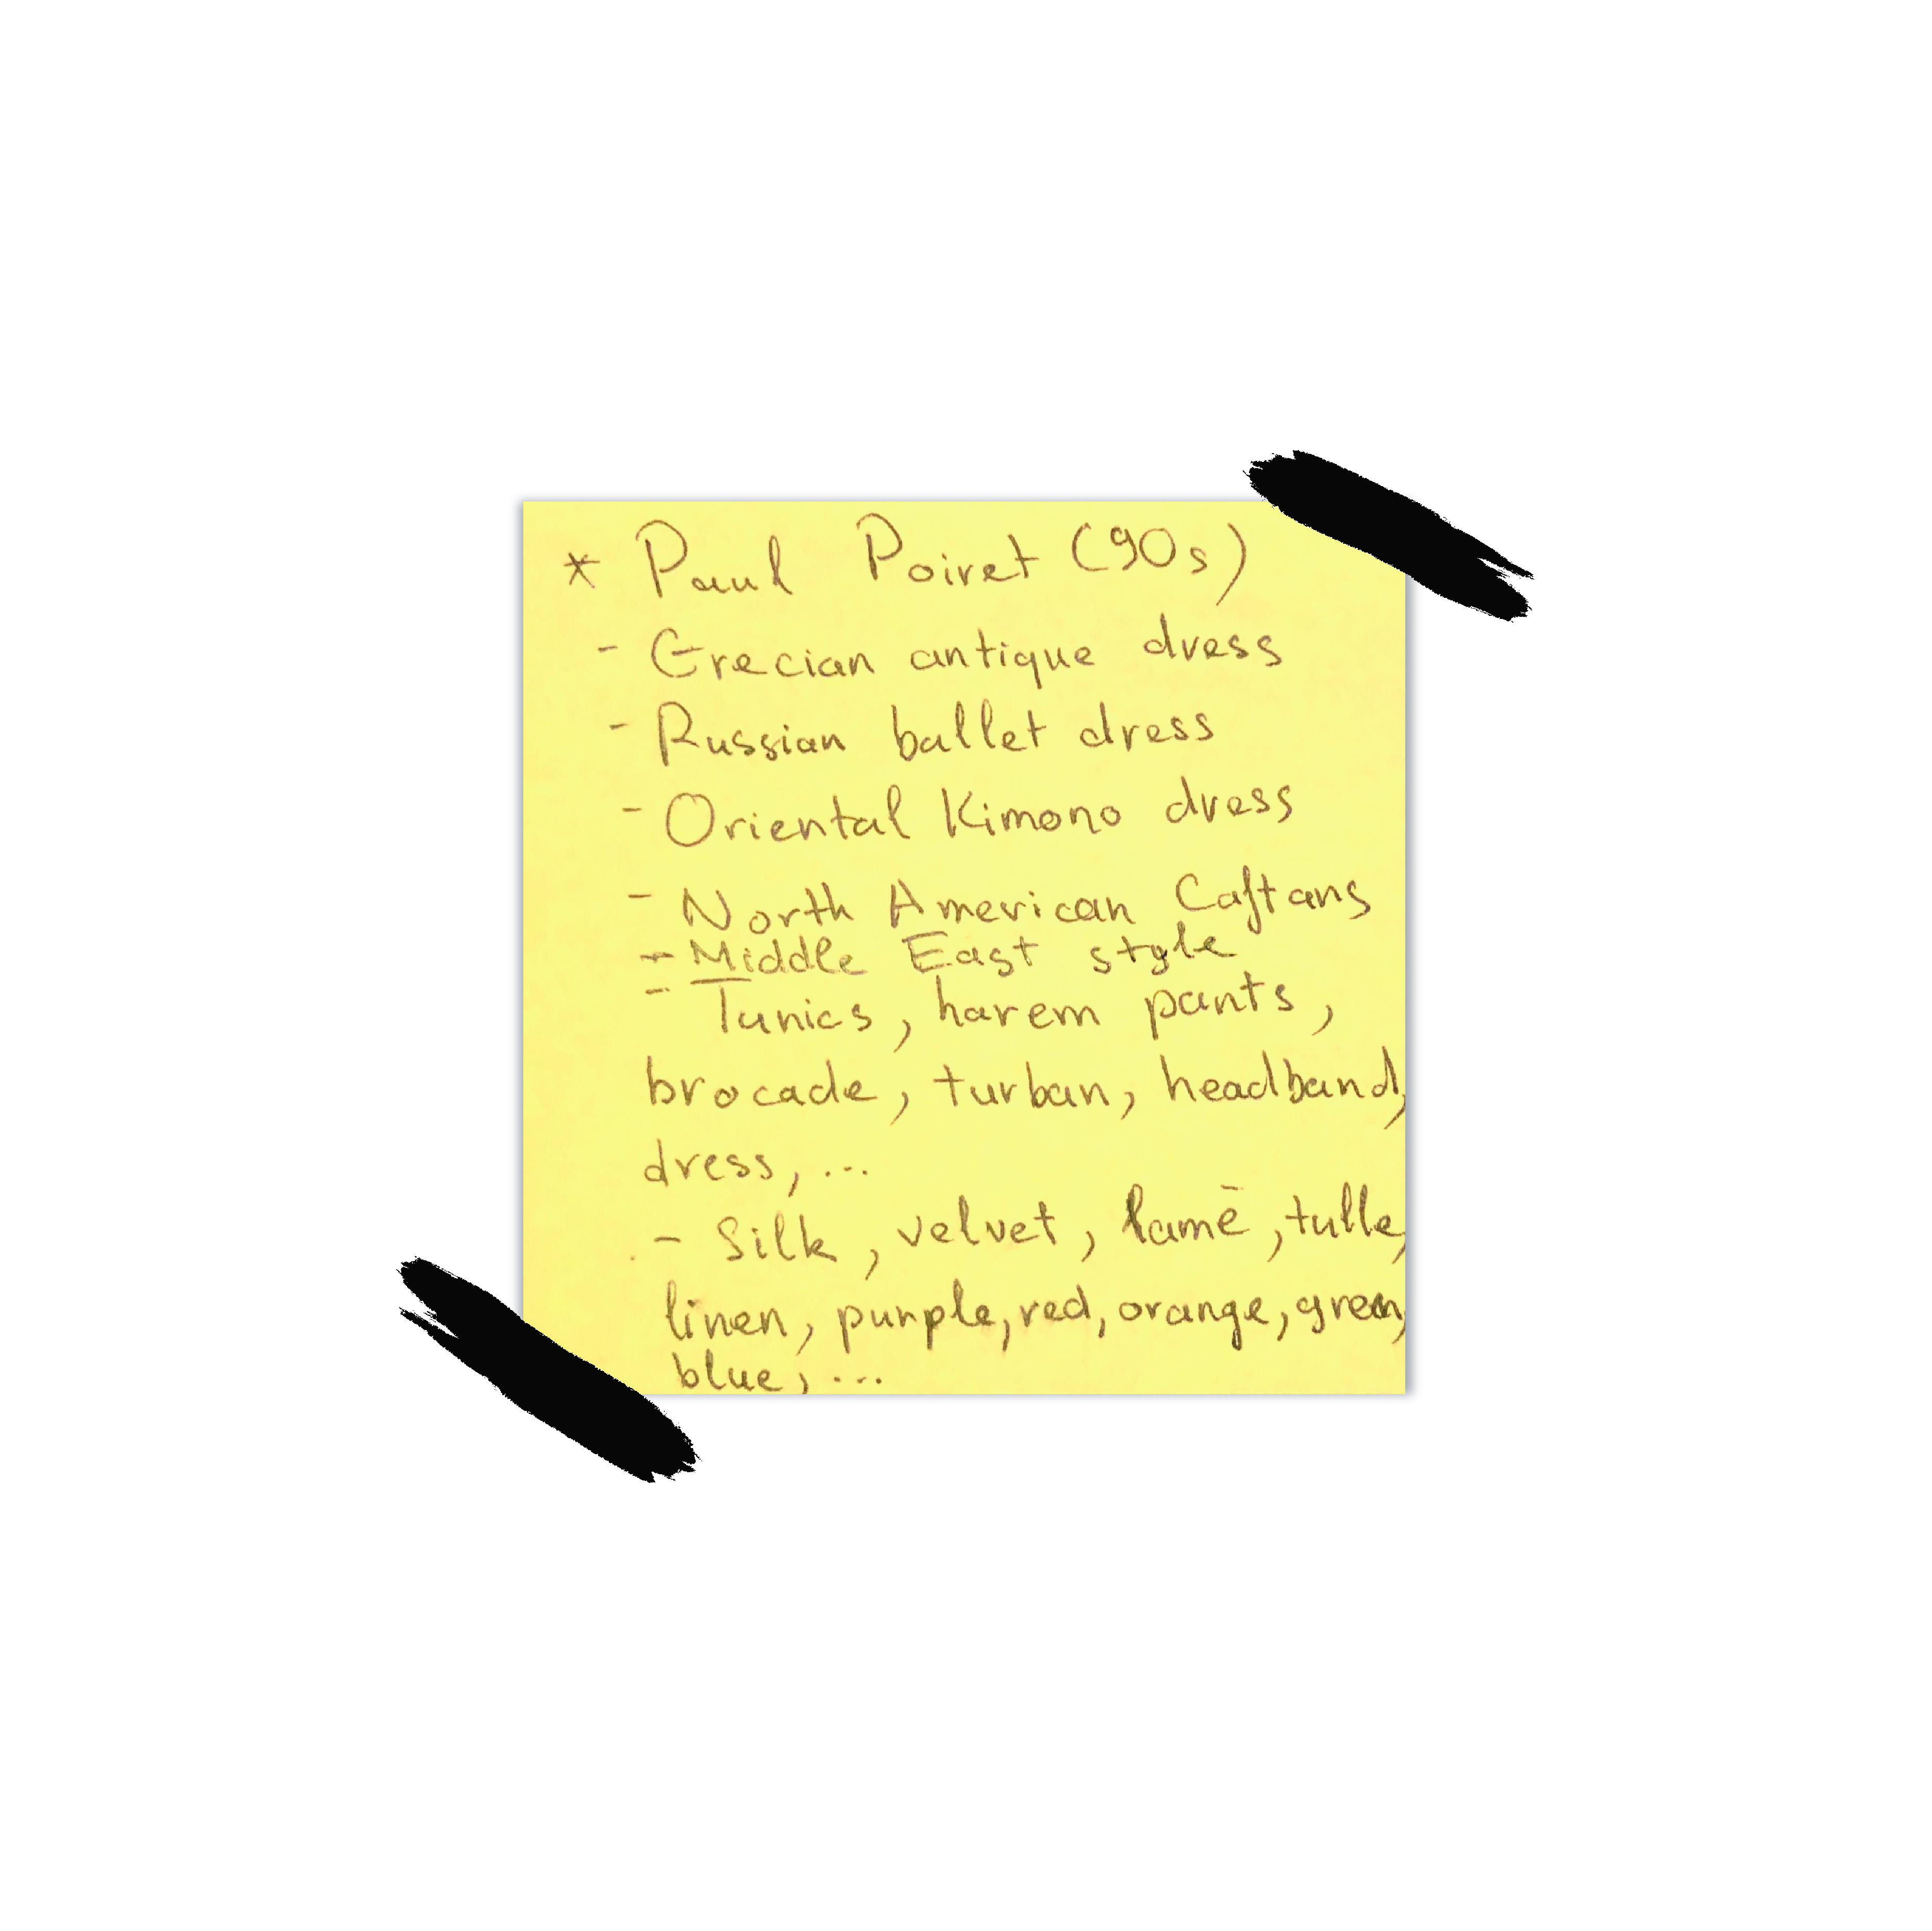 * Paul Poiret (90s)
- Grecian antique dress
- Russian ballet dress
- Oriental Kimono dress
- North American Caftans
- Middle East style
- Tunics, harem pants,
brocade, turban, headband,
dress, ...
- Silk, velvet, lamē, tulle,
linen, purple, red, orange, green,
blue, ...